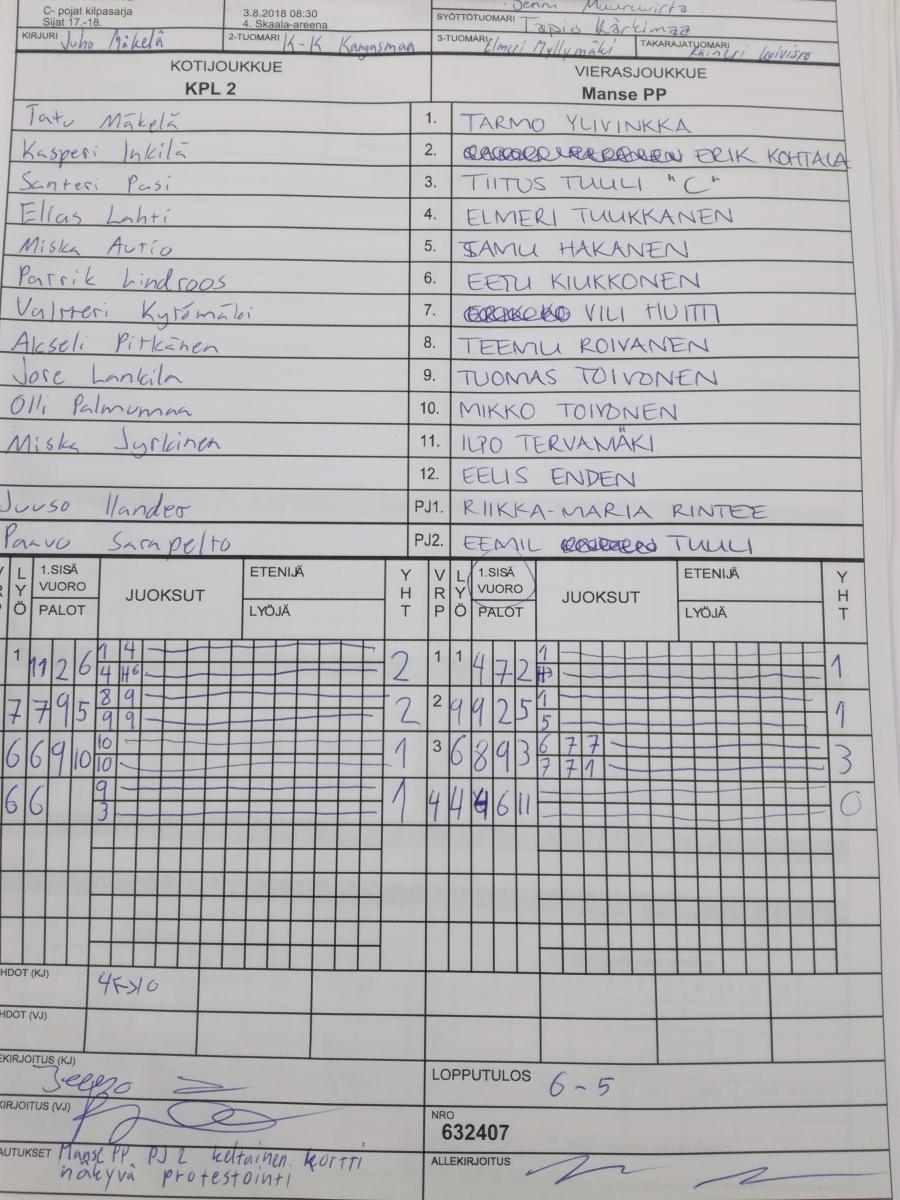 C- pojat kilpasarja
Sijat 17.-18.
3.8.2018 08:30
4. Skaala-areena
Jenni Muuruvirta
SYÖTTÖTUOMARI Tapio Kärkimaa
KIRJURI Juho Mäkelä
2-TUOMARI K-K Kangasmaa
3-TUOMARI Elmeri Myllymäki
TAKARAJATUOMARI Raineri Koivisto
KOTIJOUKKUE
KPL 2
VIERASJOUKKUE
Manse PP
Tatu Mäkelä 1. TARMO YLIVINKKA
Kasperi Inkilä 2. ERIK KOHTALA
Santeri Pasi 3. TIITUS TUULI "C"
Elias Lahti 4. ELMERI TUUKKANEN
Miska Autio 5. SAMU HAKANEN
Patrik Lindroos 6. EETU KIUKKONEN
Valtteri Kytömäki 7. VILI HUITTI
Akseli Pitkänen 8. TEEMU ROIVANEN
Jose Lankila 9. TUOMAS TOIVONEN
Olli Palmumaa 10. MIKKO TOIVONEN
Miska Jyrkinen 11. ILPO TERVAMÄKI
12. EELIS ENDEN
Juuso Ilander PJ1. RIIKKA-MARIA RINTEE
Paavo Sarapelto PJ2. EEMIL TUULI
LYÖ 1.SISÄ VUORO PALOT JUOKSUT ETENIJÄ LYÖJÄ YHT VRP LYÖ 1.SISÄ VUORO PALOT JUOKSUT ETENIJÄ LYÖJÄ YHT
1 11 2 6 1 4 2 1 1 4 7 2 1 1
4 H6 H3
7 7 9 5 8 9 2 2 9 9 2 5 1 1
9 9 5
6 6 9 10 10 1 3 6 8 9 3 6 7 7 3
10 7 7 1
6 6 9 1 4 4 4 6 11 0
3
HDOT (KJ) 4->10
HDOT (VJ)
EKIRJOITUS (KJ)
LOPPUTULOS 6-5
KIRJOITUS (VJ)
NRO
632407
AUTUKSET Manse PP PJ 2 keltainen kortti
näkyvä protestointi
ALLEKIRJOITUS